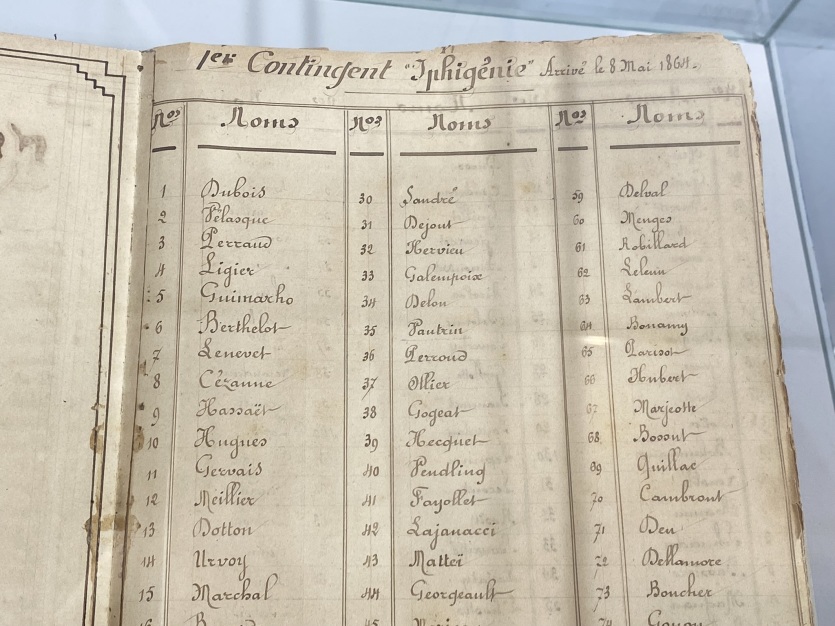 1er Contingent "Iphigénie" Arrivé le 8 Mai 1864.
Nos Noms Nos Noms Nos Noms
1 Dubois 30 Sandré 59 Delval
2 Pélasque 31 Dejout 60 Menges
3 Perraud 32 Hervieu 61 Robillard
4 Ligier 33 Galempoix 62
5 Guimarho 34 Delon 63 Lambert
6 Berthelot 35 Pautrin 64 Bonamy
7 Lenevet 36 Perroud 65 Parisot
8 Cézanne 37 Ollier 66 Hubert
9 Hassaët 38 Gogeat 67 Marjotte
10 Hugues 39 Hecquet 68 Bossut
11 Gervais 40 Pendling 69 Quillac
12 Meillier 41 Fayollet 70 Cambront
13 Dotton 42 Lajanacci 71 Deu
14 Urvoy 43 Matteï 72 Dellamore
15 Marchal 44 Georgeault 73 Boucher
16 45 74